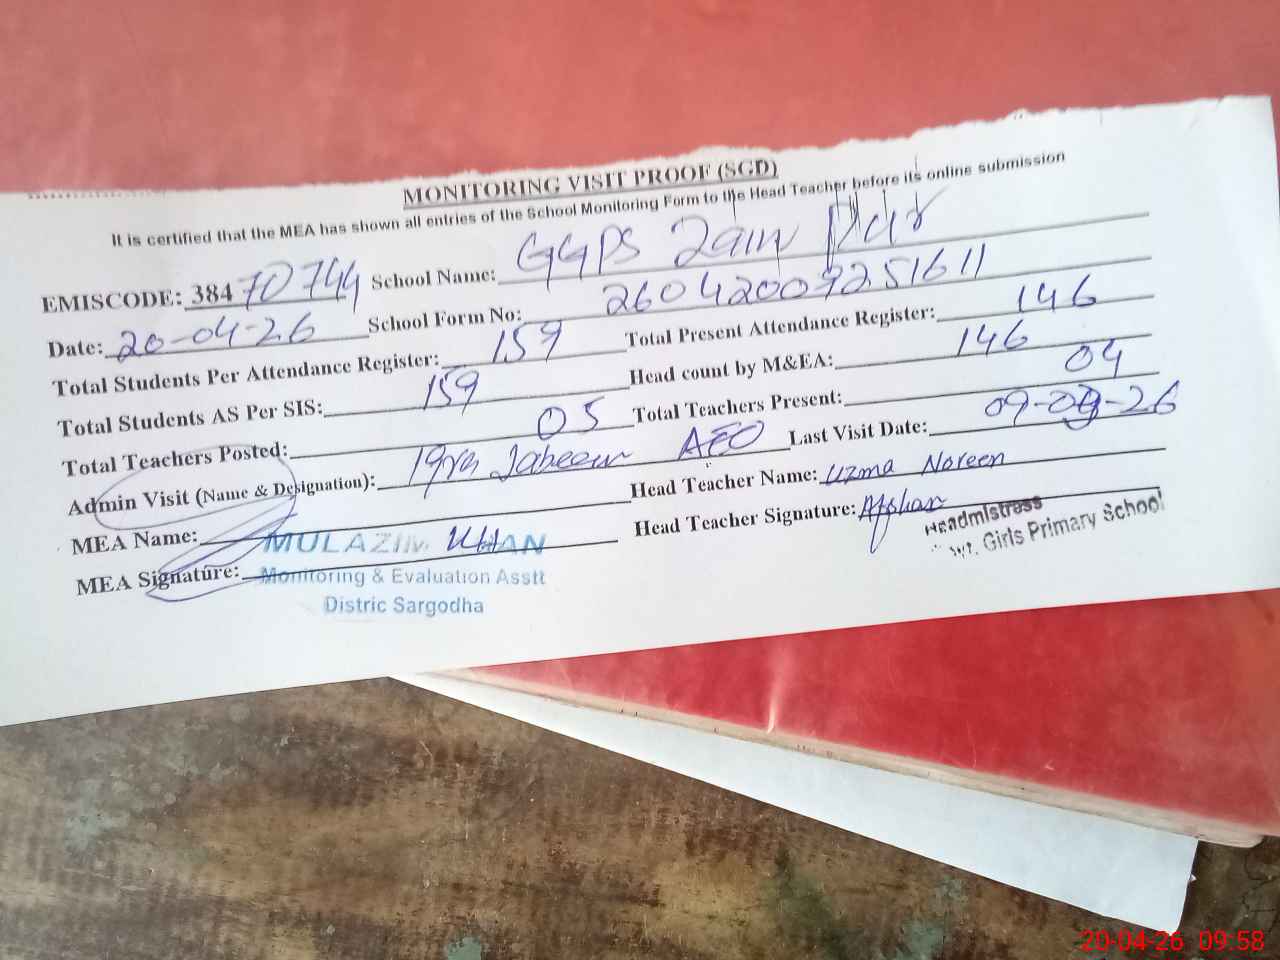 MONITORING VISIT PROOF (SGD)
It is certified that the MEA has shown all entries of the School Monitoring Form to the Head Teacher before its online submission
EMISCODE: 38470744 School Name: GGPS Zain Pur
Date: 20-04-26 School Form No: 260420097251611
Total Students Per Attendance Register: 159 Total Present Attendance Register: 146
Total Students AS Per SIS: 159 Head count by M&EA: 146
Total Teachers Posted: 05 Total Teachers Present: 04
Admin Visit (Name & Designation): Iqra Jabeen AEO Last Visit Date: 09-03-26
MEA Name: Head Teacher Name: Uzma Noreen
MEA Signature: Head Teacher Signature: Afshan
MULAZIM KHAN
Monitoring & Evaluation Asstt
Distric Sargodha
Headmistress
Girls Primary School
20-04-26 09:58